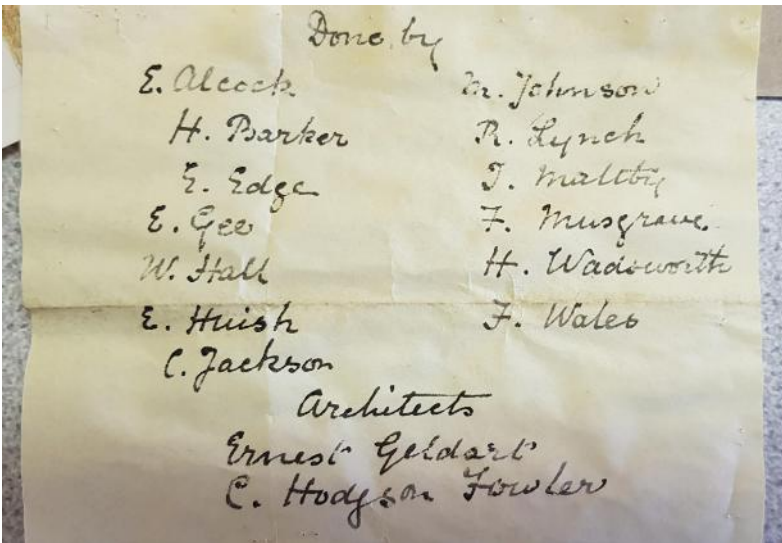 Done by
E. Alcock
H. Barker
E. Edge
E. Gee
W. Hall
E. Huish
C. Jackson
M. Johnson
R. Lynch
T. Maltby
F. Musgrave.
H. Wadsworth
F. Wales
Architects
Ernest Geldart
C. Hodgson Fowler